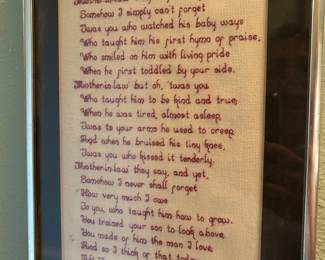 Mother-in-law
Somehow I simply can't forget
'Twas you who watched his baby ways
Who taught him his first hymn of praise,
Who smiled on him with living pride
When he first toddled by your side.
Mother-in-law but oh, 'twas you
Who taught him to be kind and true;
When he was tired, almost asleep,
'Twas to your arms he used to creep
And when he bruised his tiny knee,
'Twas you who kissed it tenderly.
Mother-in-law they say, and yet,
Somehow I never shall forget
How very much I owe
To you, who taught him how to grow.
You trained your son to look above,
You made of him the man I love;
And so I think of that today